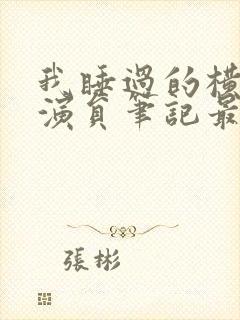 我睡過的橫
演員筆記最
張彬